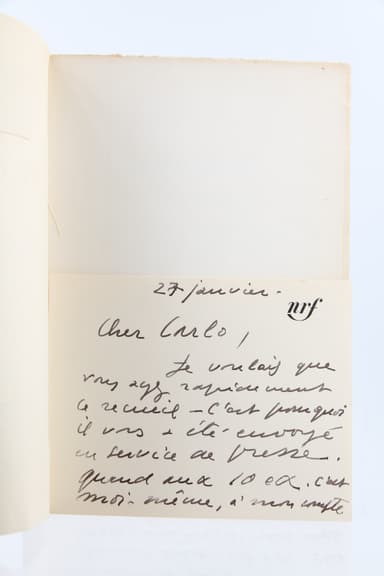 27 janvier.
nrf
Cher Carlo,
Je voulais que
vous ayez rapidement
ce recueil – c'est pourquoi
il vous a été envoyé
en service de presse.
quand aux 10 ex. c'est
moi-même, à mon compte